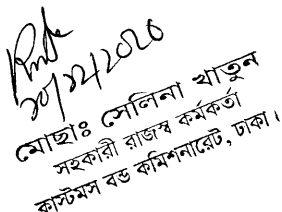 ২০/১২/২০২০
মোছাঃ সেলিনা খাতুন
সহকারী রাজস্ব কর্মকর্তা
কাস্টমস বন্ড কমিশনারেট, ঢাকা।